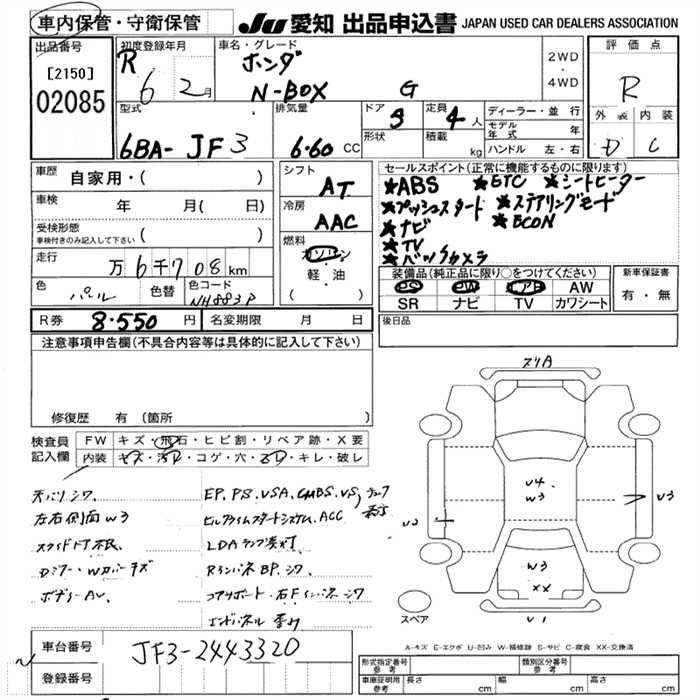 車内保管・守衛保管
JU 愛知 出品申込書 JAPAN USED CAR DEALERS ASSOCIATION
出品番号
[2150]
02085
初度登録年月
R 6 2月
車名・グレード
ホンダ
N-BOX G
2WD
・
4WD
評価点
R
外装 内装
D C
型式
6BA- JF3
排気量
6.60 CC
ドア 5
形状
定員 4 人
積載 kg
ディーラー・並行
モデル年式 年
ハンドル 左・右
車歴 自家用・( )
車検 年 月( 日)
受検形態
車検付きのみ記入して下さい ( )
走行 万 6千708km
色 パール 色替 色コード NH883P
シフト AT
冷房 AAC
燃料 ガソリン
・
軽・油
( )
セールスポイント(正常に機能するものに限ります)
★ABS ★ETC ★シートヒーター
★プッシュスタート ★ステアリングリモート
★ナビ ★ECON
★TV
★バックカメラ
装備品(純正品に限り○をつけてください)
PS PW エアB AW
SR ナビ TV カワシート
新車保証書
有・無
R券 8.550 円
名変期限 月 日
後日品
注意事項申告欄(不具合内容等は具体的に記入して下さい)
修復歴 有(箇所 )
検査員記入欄
FW キズ・飛石・ヒビ割・リペア跡・X要
内装 キズ・汚れ・コゲ・穴・・キレ・破レ
天バリシワ
左右側面W3
スライドドア不良
Dミラー・Wカバーキズ
ボデーAU
EP, PS, VSA, CMBS, VS,
システム, ACC
LDAランプ点灯
BP. シワ
コアサポート・右Fインパネシワ
エンドパネル
ズリA
U4
W3
U2
U3
W3
XX
U1
スペア
A-キズ E-エクボ U-凹み W-補修跡 S-サビ C-腐食 XX-交換済
車台番号 JF3-2443320
登録番号
形式指定番号
参考
類別区分番号
参考
車庫証明用
参考
長さ cm 幅 cm 高さ cm